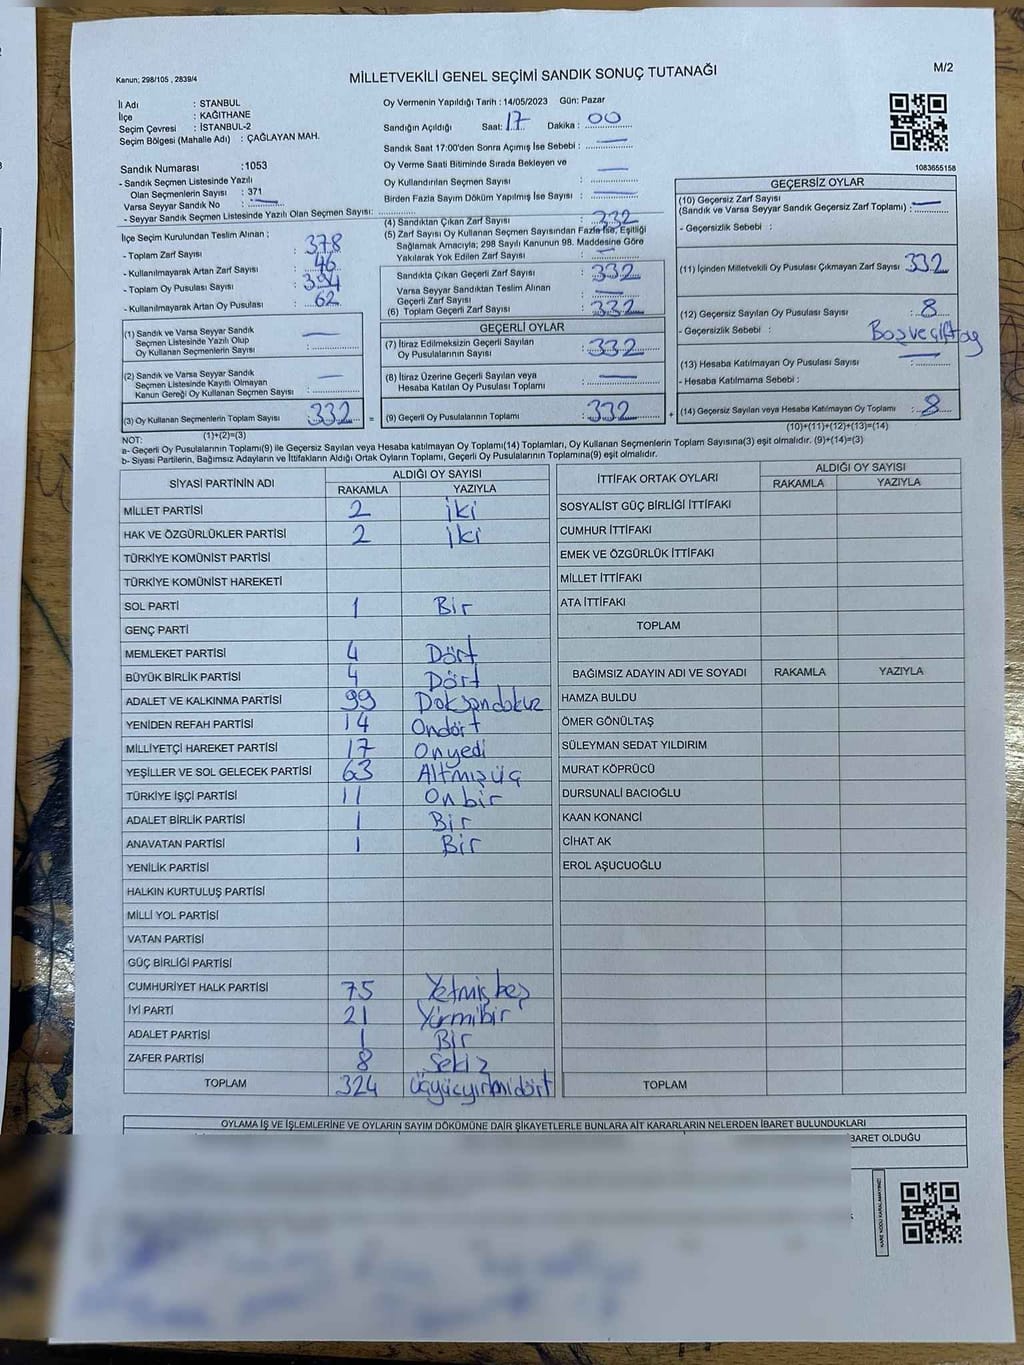 Kanun; 298/105 , 2839/4
MİLLETVEKİLİ GENEL SEÇİMİ SANDIK SONUÇ TUTANAĞI
M/2
İl Adı : STANBUL
İlçe : KAĞITHANE
Seçim Çevresi : İSTANBUL-2
Seçim Bölgesi (Mahalle Adı) : ÇAĞLAYAN MAH.
Sandık Numarası :1053
- Sandık Seçmen Listesinde Yazılı
Olan Seçmenlerin Sayısı : 371
Varsa Seyyar Sandık No : —
- Seyyar Sandık Seçmen Listesinde Yazılı Olan Seçmen Sayısı:
İlçe Seçim Kurulundan Teslim Alınan ;
- Toplam Zarf Sayısı : 378
- Kullanılmayarak Artan Zarf Sayısı : 46
- Toplam Oy Pusulası Sayısı :
- Kullanılmayarak Artan Oy Pusulası : 62
(1) Sandık ve Varsa Seyyar Sandık
Seçmen Listesinde Yazılı Olup
Oy Kullanan Seçmenlerin Sayısı : —
(2) Sandık ve Varsa Seyyar Sandık
Seçmen Listesinde Kayıtlı Olmayan
Kanun Gereği Oy Kullanan Seçmen Sayısı : —
(3) Oy Kullanan Seçmenlerin Toplam Sayısı : 332 =
(1)+(2)=(3)
Oy Vermenin Yapıldığı Tarih : 14/05/2023 Gün: Pazar
Sandığın Açıldığı Saat: 17 Dakika : 00
Sandık Saat 17:00'den Sonra Açımış İse Sebebi : —
Oy Verme Saati Bitiminde Sırada Bekleyen ve
Oy Kullandırılan Seçmen Sayısı : —
Birden Fazla Sayım Döküm Yapılmış İse Sayısı : —
(4) Sandıktan Çıkan Zarf Sayısı : 332
(5) Zarf Sayısı Oy Kullanan Seçmen Sayısından Fazla İse, Eşitliği
Sağlamak Amacıyla; 298 Sayılı Kanunun 98. Maddesine Göre
Yakılarak Yok Edilen Zarf Sayısı : —
Sandıkta Çıkan Geçerli Zarf Sayısı : 332
Varsa Seyyar Sandıktan Teslim Alınan
Geçerli Zarf Sayısı : —
(6) Toplam Geçerli Zarf Sayısı : 332
GEÇERLİ OYLAR
(7) İtiraz Edilmeksizin Geçerli Sayılan
Oy Pusulalarının Sayısı : 332
(8) İtiraz Üzerine Geçerli Sayılan veya
Hesaba Katılan Oy Pusulası Toplamı : —
(9) Geçerli Oy Pusulalarının Toplamı : 332 +
1083655158
GEÇERSİZ OYLAR
(10) Geçersiz Zarf Sayısı
(Sandık ve Varsa Seyyar Sandık Geçersiz Zarf Toplamı) : —
- Geçersizlik Sebebi :
(11) İçinden Milletvekili Oy Pusulası Çıkmayan Zarf Sayısı : 332
(12) Geçersiz Sayılan Oy Pusulası Sayısı : 8
- Geçersizlik Sebebi : Boş ve çift oy
(13) Hesaba Katılmayan Oy Pusulası Sayısı : —
- Hesaba Katılmama Sebebi :
(14) Geçersiz Sayılan veya Hesaba Katılmayan Oy Toplamı : 8
(10)+(11)+(12)+(13)=(14)
NOT:
a- Geçerli Oy Pusulalarının Toplamı(9) ile Geçersiz Sayılan veya Hesaba katılmayan Oy Toplamı(14) Toplamları, Oy Kullanan Seçmenlerin Toplam Sayısına(3) eşit olmalıdır. (9)+(14)=(3)
b- Siyasi Partilerin, Bağımsız Adayların ve İttifakların Aldığı Ortak Oyların Toplamı, Geçerli Oy Pusulalarının Toplamına(9) eşit olmalıdır.
SİYASİ PARTİNİN ADI ALDIĞI OY SAYISI
RAKAMLA YAZIYLA
MİLLET PARTİSİ 2 iki
HAK VE ÖZGÜRLÜKLER PARTİSİ 2 iki
TÜRKİYE KOMÜNİST PARTİSİ
TÜRKİYE KOMÜNİST HAREKETİ
SOL PARTİ 1 Bir
GENÇ PARTİ
MEMLEKET PARTİSİ 4 Dört
BÜYÜK BİRLİK PARTİSİ 4 Dört
ADALET VE KALKINMA PARTİSİ 99 Doksandokuz
YENİDEN REFAH PARTİSİ 14 Ondört
MİLLİYETÇİ HAREKET PARTİSİ 17 Onyedi
YEŞİLLER VE SOL GELECEK PARTİSİ 63 Altmışüç
TÜRKİYE İŞÇİ PARTİSİ 11 Onbir
ADALET BİRLİK PARTİSİ 1 Bir
ANAVATAN PARTİSİ 1 Bir
YENİLİK PARTİSİ
HALKIN KURTULUŞ PARTİSİ
MİLLİ YOL PARTİSİ
VATAN PARTİSİ
GÜÇ BİRLİĞİ PARTİSİ
CUMHURİYET HALK PARTİSİ 75 Yetmişbeş
İYİ PARTİ 21 Yirmibir
ADALET PARTİSİ 1 Bir
ZAFER PARTİSİ 8 Sekiz
TOPLAM 324 Üçyüzyirmidört
İTTİFAK ORTAK OYLARI ALDIĞI OY SAYISI
RAKAMLA YAZIYLA
SOSYALİST GÜÇ BİRLİĞİ İTTİFAKI
CUMHUR İTTİFAKI
EMEK VE ÖZGÜRLÜK İTTİFAKI
MİLLET İTTİFAKI
ATA İTTİFAKI
TOPLAM
BAĞIMSIZ ADAYIN ADI VE SOYADI RAKAMLA YAZIYLA
HAMZA BULDU
ÖMER GÖNÜLTAŞ
SÜLEYMAN SEDAT YILDIRIM
MURAT KÖPRÜCÜ
DURSUNALİ BACIOĞLU
KAAN KONANCİ
CİHAT AK
EROL AŞUCUOĞLU
TOPLAM
OYLAMA İŞ VE İŞLEMLERİNE VE OYLARIN SAYIM DÖKÜMÜNE DAİR ŞİKAYETLERLE BUNLARA AİT KARARLARIN NELERDEN İBARET BULUNDUKLARI
BARET OLDUĞU
KARE KODU KARALAMAYINIZ!